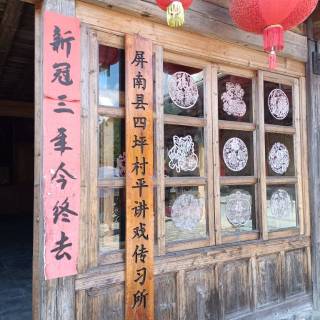 新冠三年今终去
屏南县四坪村平讲戏传习所